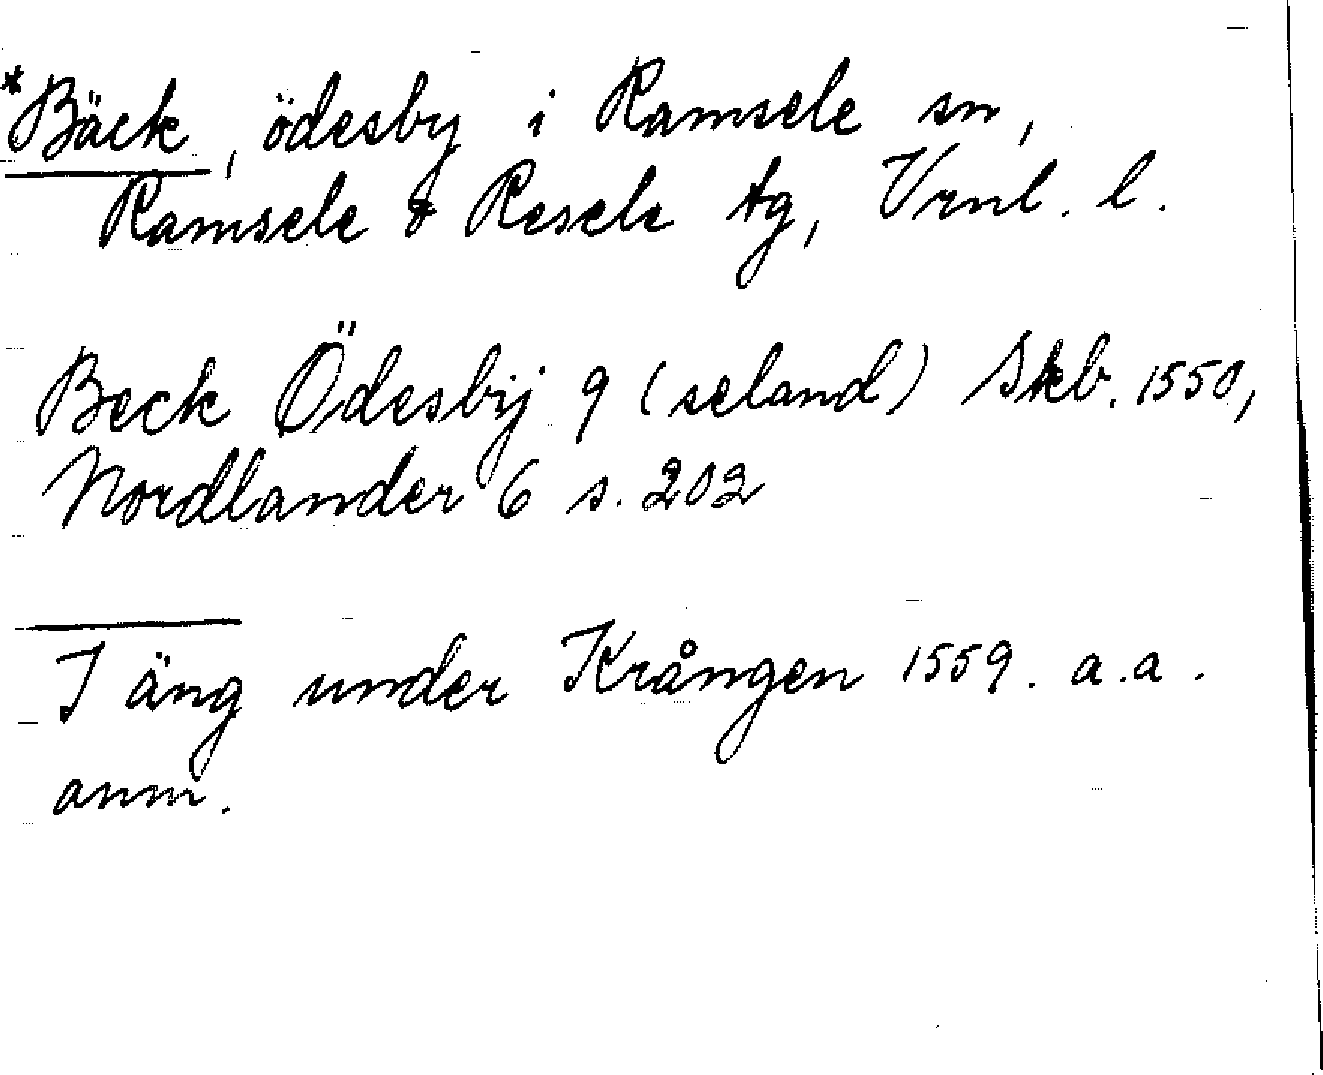 *Bäck, ödesby i Ramsele sn,
Ramsele & Resele tg, Vrnl. l.
Beck Ödesbÿ 9 (seland) Skb. 1550,
Nordlander 6 s. 202
I äng under Krången 1559. a.a.
anm.